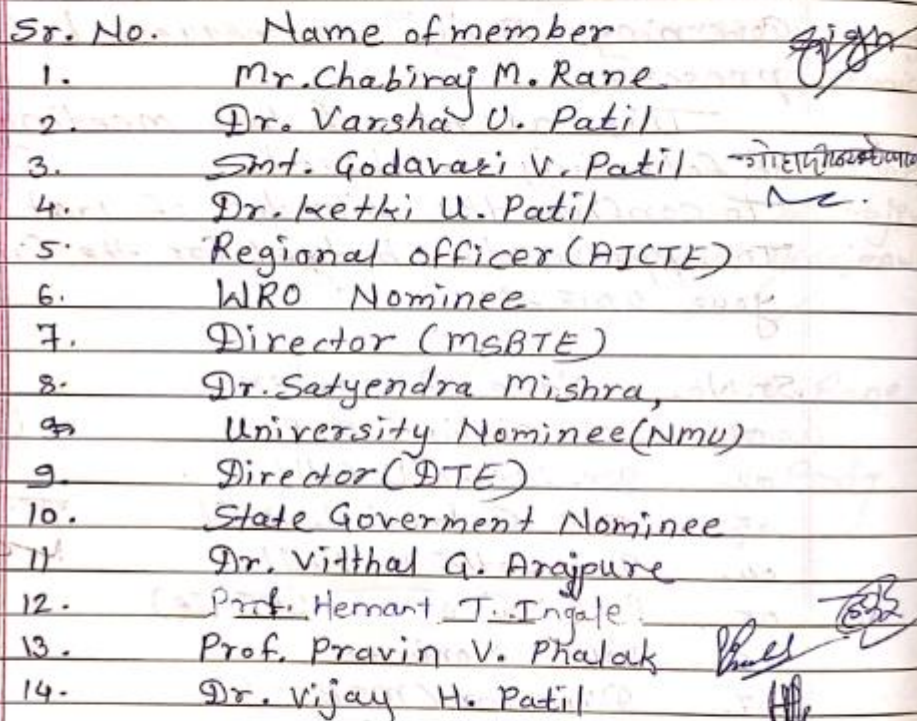 Sr. No. Name of member
1. Mr. Chabiraj M. Rane
2. Dr. Varsha U. Patil
3. Smt. Godavari V. Patil
4. Dr. Ketki U. Patil
5. Regional officer (AICTE)
6. WRO Nominee
7. Director (MSBTE)
8. Dr. Satyendra Mishra,
University Nominee (NMU)
9. Director (DTE)
10. State Goverment Nominee
11 Dr. Vitthal G. Arajpure
12. Prof. Hemant T. Ingale
13. Prof. Pravin V. Phalak
14. Dr. Vijay H. Patil